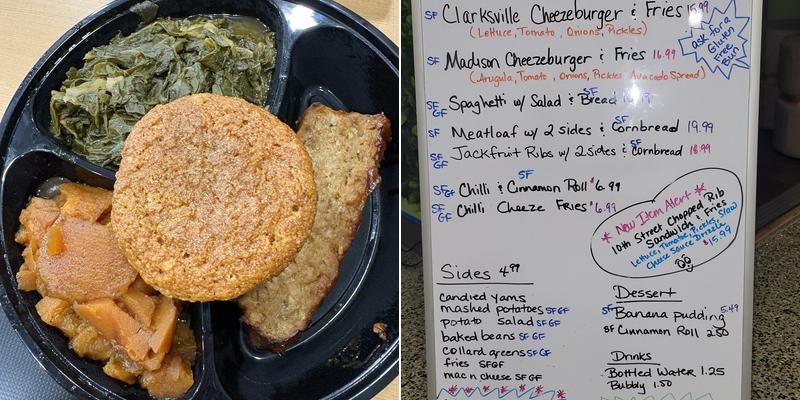 SF Clarksville Cheezeburger & Fries 15.99
(Lettuce, Tomato, Onions, Pickles)
ask for a
Gluten
Free
Bun
SF Madison Cheezeburger & Fries 16.99
(Arugula, Tomato, Onions, Pickles, Avacado Spread)
SF GF Spaghetti w/ Salad & SF Bread
SF Meatloaf w/ 2 sides & SF Cornbread 19.99
SF GF Jackfruit Ribs w/ 2 sides & SF Cornbread 18.99
SF GF Chilli & SF Cinnamon Roll $6.99
SF GF Chilli Cheeze Fries $6.99
* New Item Alert *
10th Street Chopped Rib
Sandwich & Fries
Lettuce, Tomatoe, Pickles, Slaw
Cheese Sauce Drizzle
$15.99
Sides 4.99
candied yams
mashed potatoes SF GF
potato salad SF GF
baked beans SF GF
collard greens SF GF
fries SF GF
mac n cheese SF GF
Dessert
SF Banana pudding 5.49
SF Cinnamon Roll 2.50
Drinks
Bottled Water 1.25
Bubbly 1.50